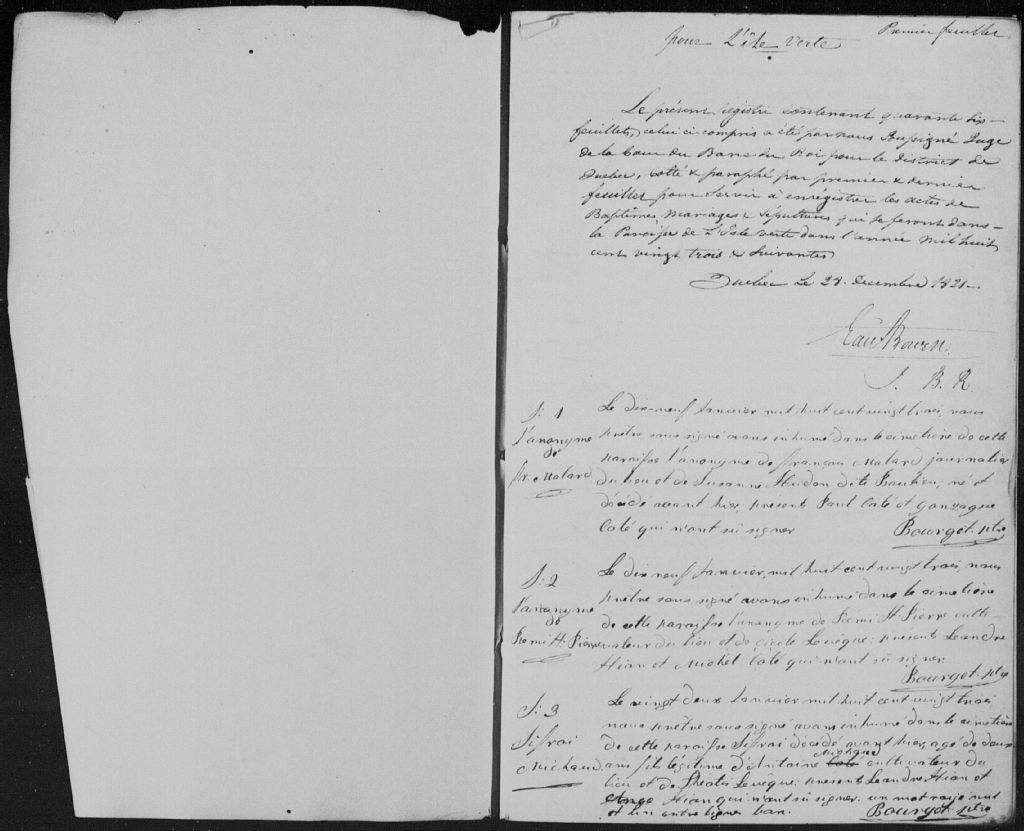 Premier feuillet
pour L'isle verte
Le présent Registre Contenant quarante six
feuillets, celui ci compris a été par nous Soussigné Juge
de la Cour du Banc du Roi pour le district de
Quebec, cotté & paraphé par premier & dernier
feuillet pour Servir à enrégistrer les actes de
Baptêmes, Mariages & Sépultures qui se feront dans
la Paroisse de L'Isle verte dans l'année Mil huit
cent vingt trois & Suivantes
Quebec le 28. Decembre 1821.
Edw Bowen.
J. B. R
S: 1
l'anonyme
de
fr. Malard
Le dix-neuf Janvier mil huit cent vingt trois, nous
prêtre sous signé avons inhumé dans le cimetière de cette
paroisse l'anonyme de françois Malard journalier
du lieu et de Susanne Hudon dite Baulieu; né et
décédé avant hier, présent Paul Coté et Gonzague
Coté qui n'ont sû signer
Bourget ptre
S: 2
l'anonyme
de
Remi St. Pierre
Le dix neuf Janvier, mil huit cent vingt trois, nous
prêtre sous signé avons inhumé dans le cimetière
de cette paroisse l'anonyme de Remi St Pierre culti-
vateur du lieu et de Levêque; présent Leandre
et Michel Coté qui n'ont sû signer
Bourget ptre
S: 3
Sifroi
Michaud
Le vingt deux Janvier mil huit cent vingt trois
nous prêtre sous signé avons inhumé dans le cimetière
de cette paroisse Sifroi décédé avant hier, agé de deux
ans fils légitime d'Antoine Coté Michaud cultivateur du
lieu et de Levêque; présent Leandre et
Ange qui n'ont sû signer. un mot rayé nul
et un entre lignes bon.
Bourget ptre